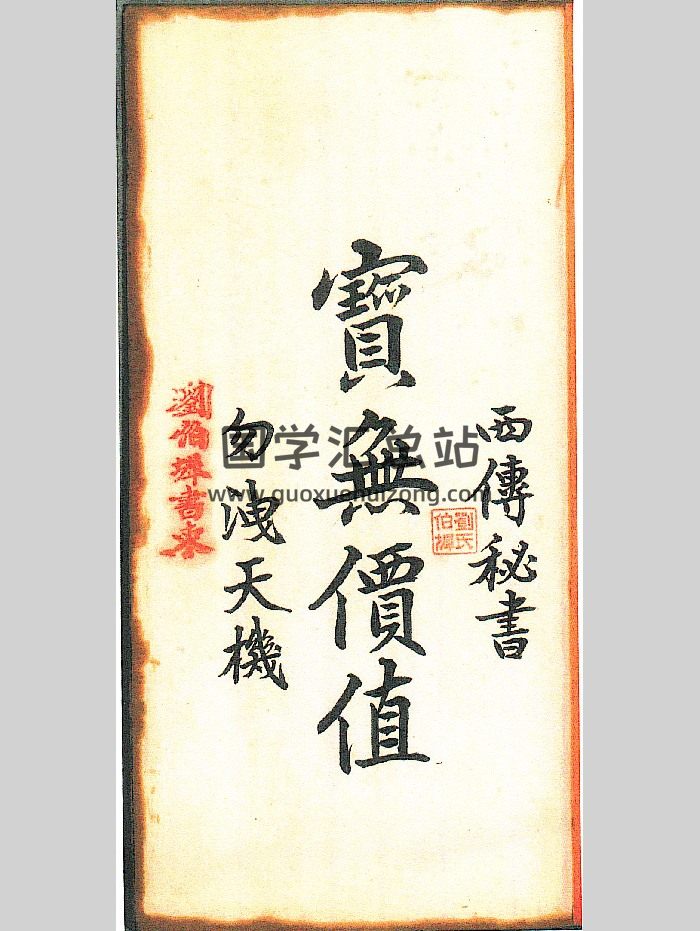 西傳秘書
寶無價值
勿洩天機
劉伯
書束
劉氏
伯
国学汇总站
www.guoxuehuizong.com